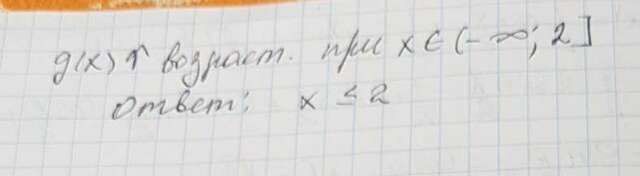 g(x) ↑ возраст. при x ∈ (-∞; 2]
Ответ: x ≤ 2